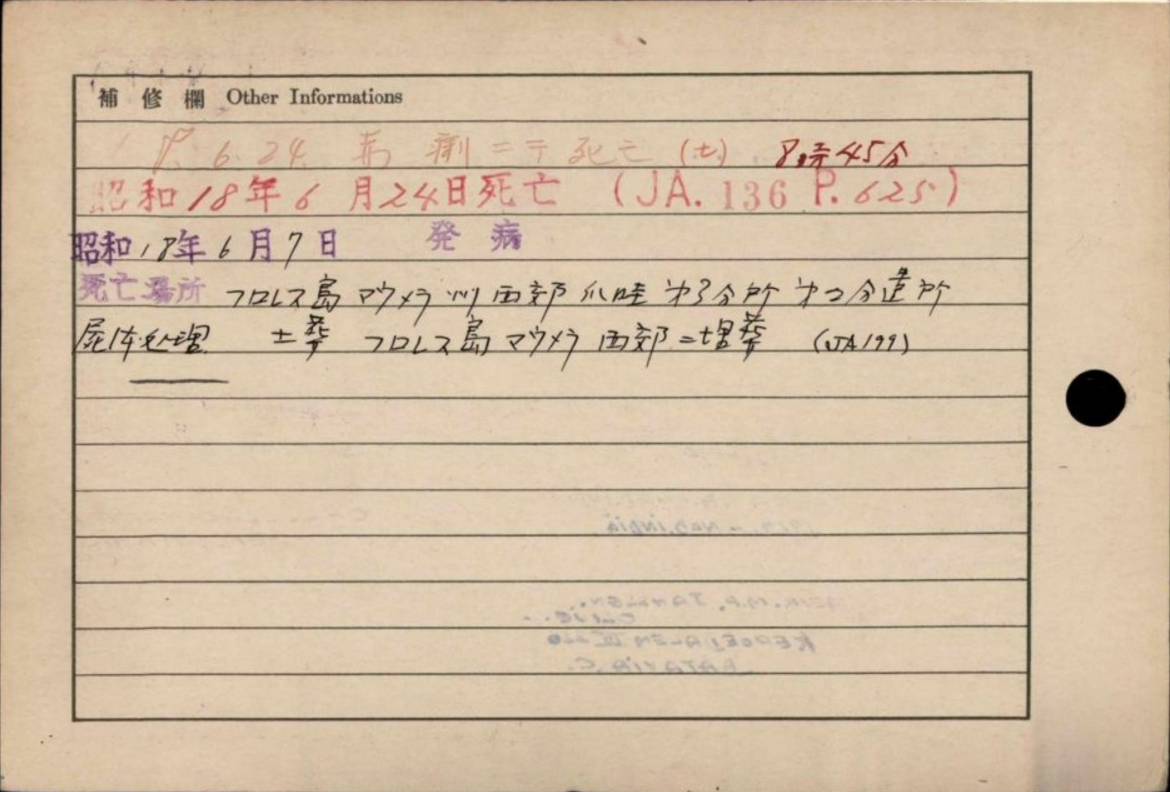 補修欄 Other Informations
18. 6. 24. 赤痢ニテ死亡 (土) 8時45分
昭和18年6月24日死亡 (JA. 136 P. 625)
昭和18年6月7日 発病
死亡場所 フロレス島 マウメラ 西郊 爪哇 第3分所 第2分遣所
屍体処理 土葬 フロレス島 マウメラ 西郊ニ埋葬 (JA199)
BATAVIA. C.